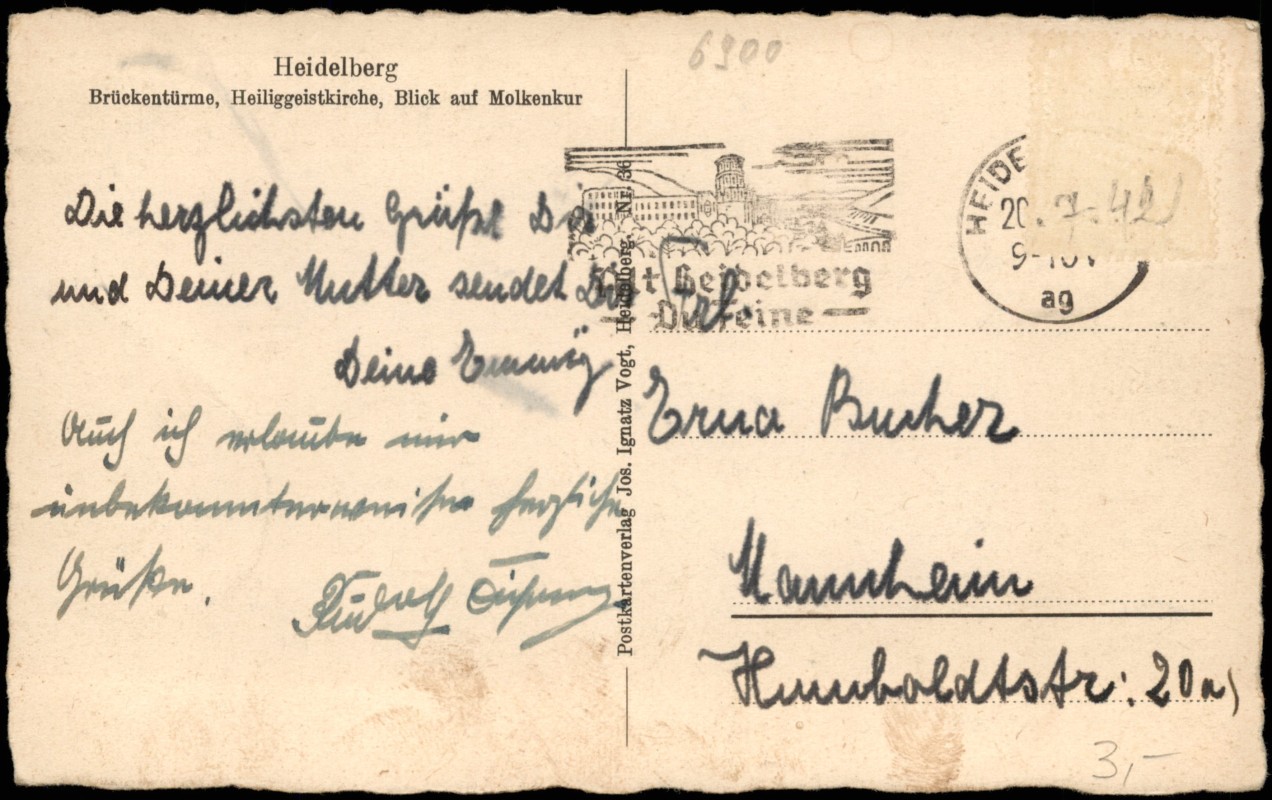 Heidelberg
Brückentürme, Heiliggeistkirche, Blick auf Molkenkur
6900
Die herzlichsten Grüße Dir
und Deiner Mutter sendet Dir
Deine Emmy
Auch ich erlaube mir
unbekannterweise herzliche
Grüße.
Rudolf
Postkartenverlag Jos. Ignatz Vogt, Heidelberg. Nr. 36
Alt Heidelberg
Du Feine
HEIDE
20.7.42
9-10
ag
Frl.
Erna Bucher
Mannheim
Humboldtstr: 20a)
3,-